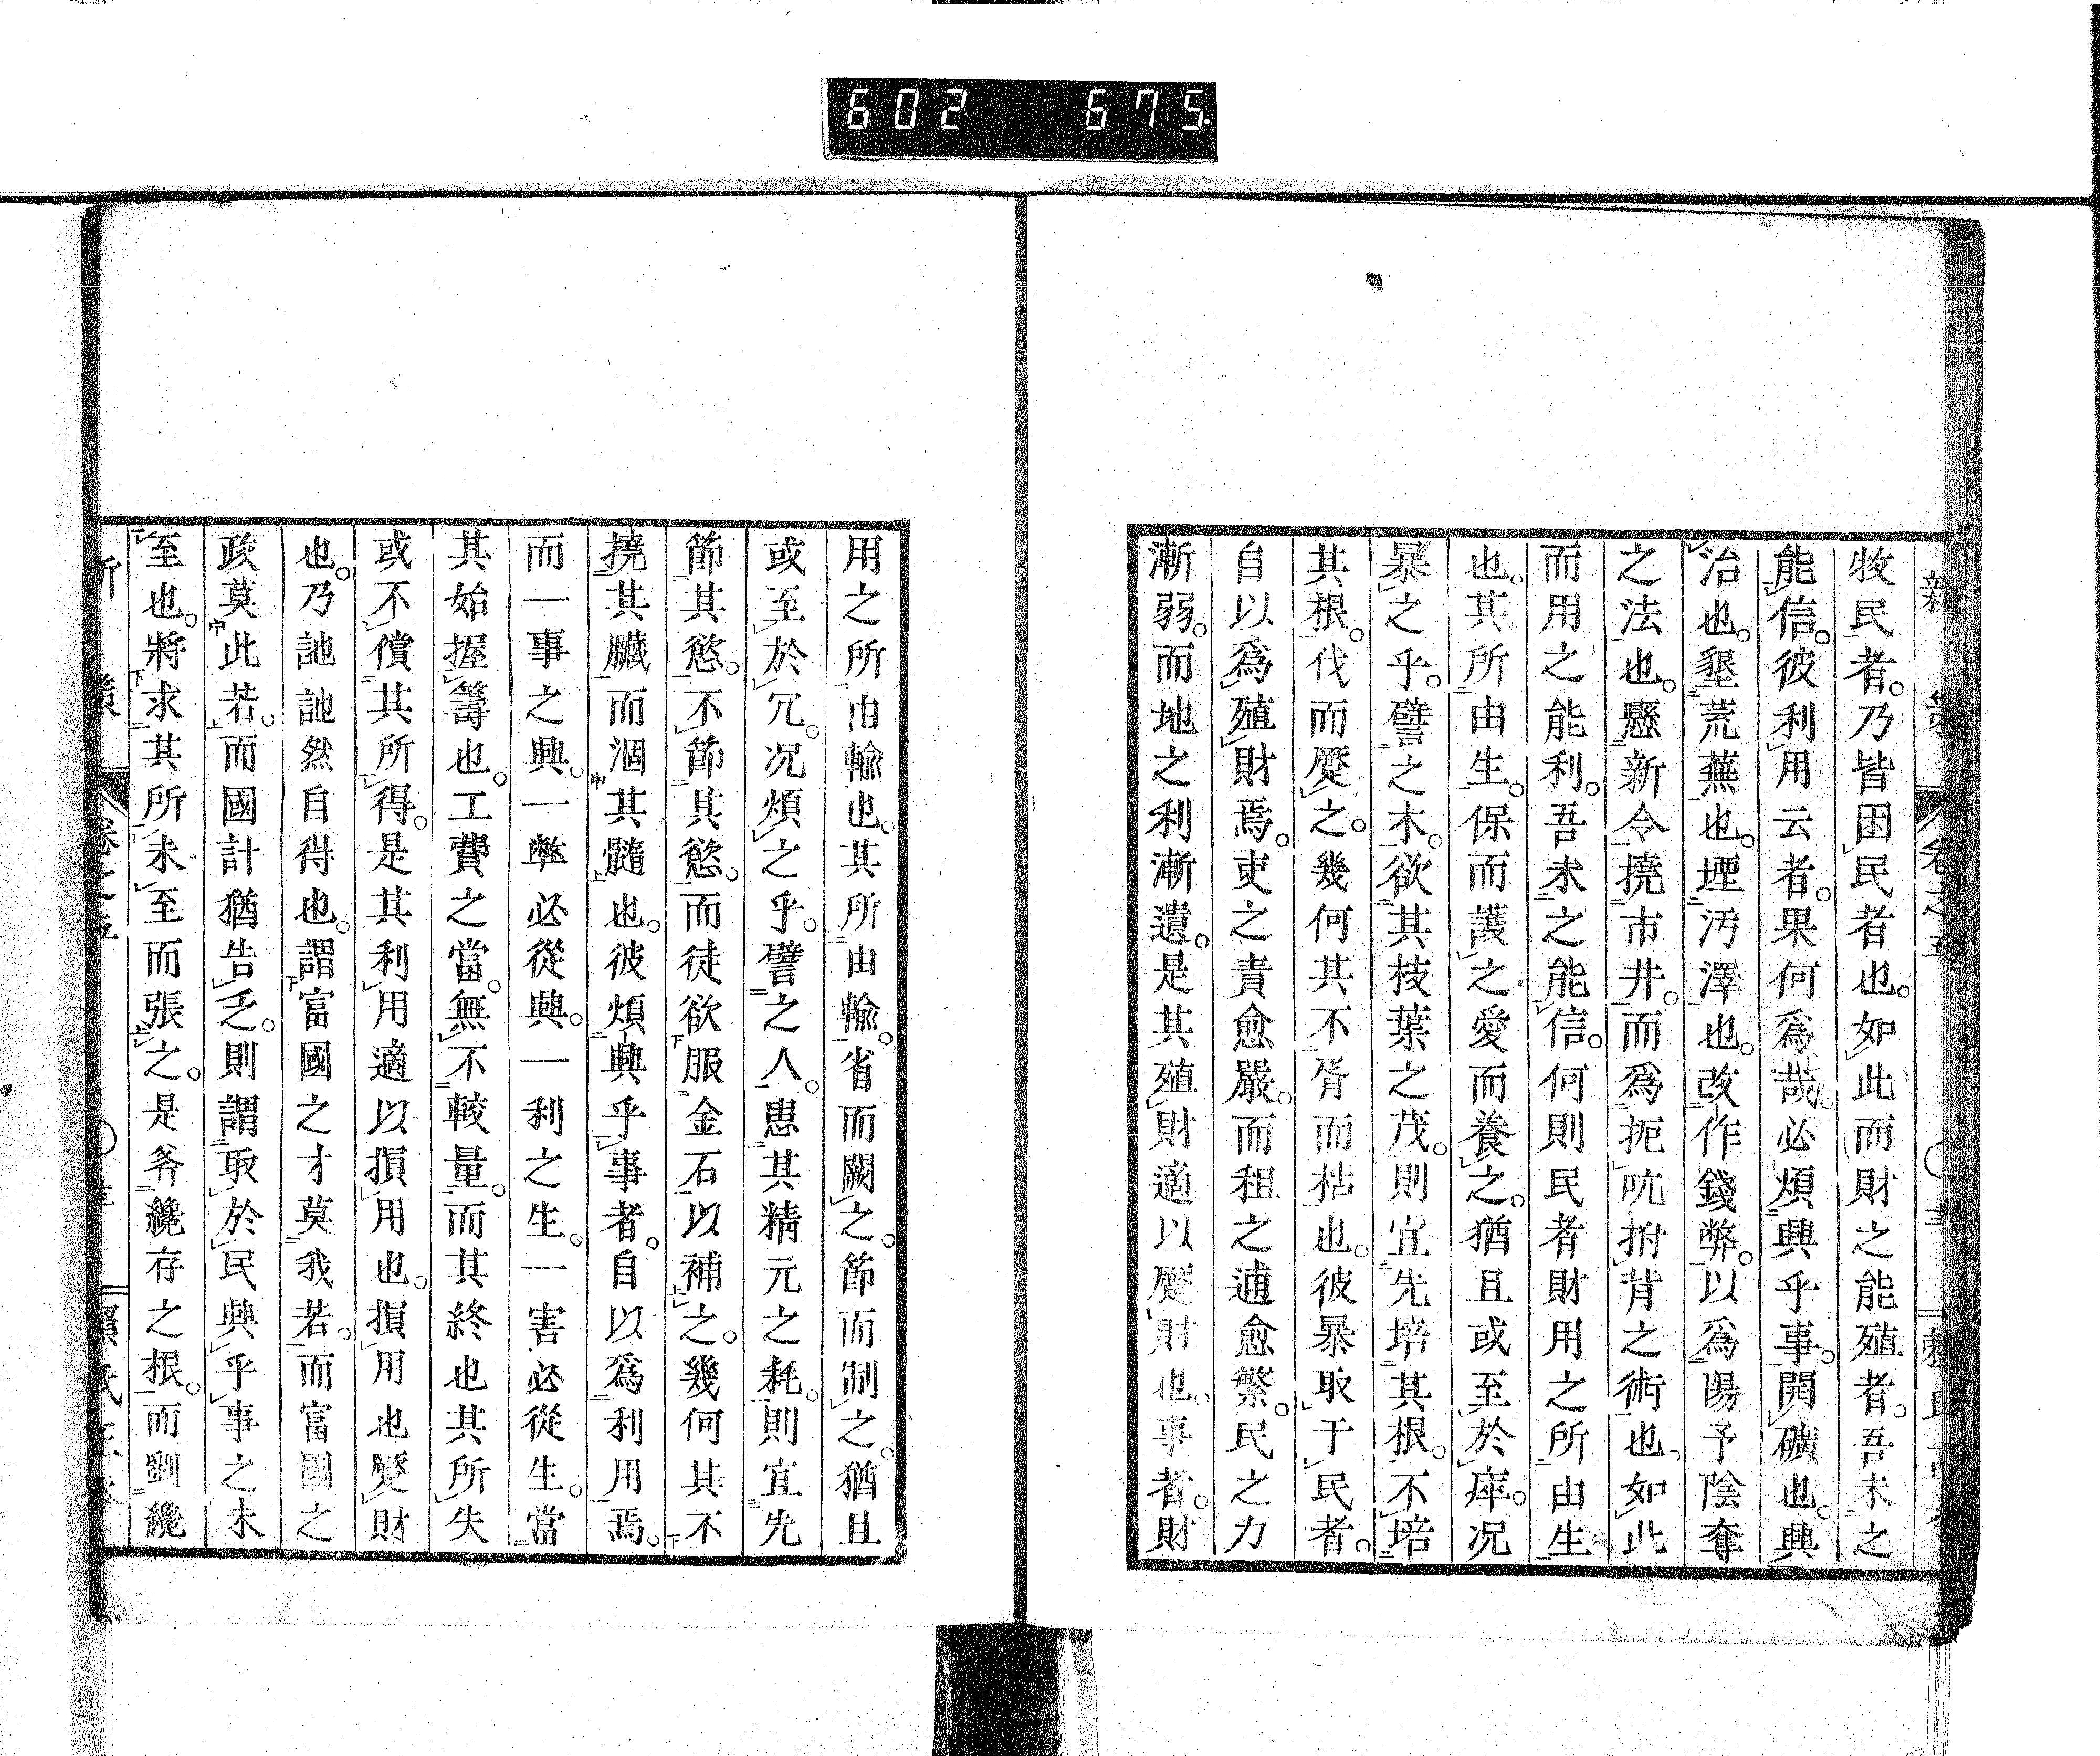 602 675
牧民者。乃皆困民者也。如此而財之能殖者。吾未之
能信。彼利用云者。果何爲哉。必煩興乎事。開礦也。興
冶也。墾荒蕪也。堙汚澤也。改作錢弊。以爲陽予陰奪
之法也。懸新令撓市井。而爲扼吭拊背之術也。如此
而用之能利。吾未之能信。何則民者財用之所由生
也。其所由生。保而護之愛而養之。猶且或至於瘁。况
暴之乎。譬之木。欲其枝葉之茂。則宜先培其根。不培
其根。伐而蹷之。幾何其不胥而枯也。彼暴取于民者。
自以爲殖財焉。吏之責愈嚴。而租之逋愈繁。民之力
漸弱。而地之利漸遺。是其殖財適以蹷財也。事者。財
用之所由輸也。其所由輸。省而闕之。節而制之。猶且
或至於冗。况煩之乎。譬之人。患其精元之耗。則宜先
節其慾。不節其慾。而徒欲服金石以補之。幾何其不
撓其臟而涸其髓也。彼煩興乎事者。自以爲利用焉。
而一事之興。一弊必從興。一利之生。一害必從生。當
其始握籌也。工費之當。無不較量。而其終也其所失
或不償其所得。是其利用適以損用也。損用也蹷財
也。乃訑訑然自得也。謂富國之才莫我若。而富國之
政莫此若。而國計猶告乏。則謂取於民興乎事之未
至也。將求其所未至而張之。是斧纔存之根。而劉纔
新策 卷之五